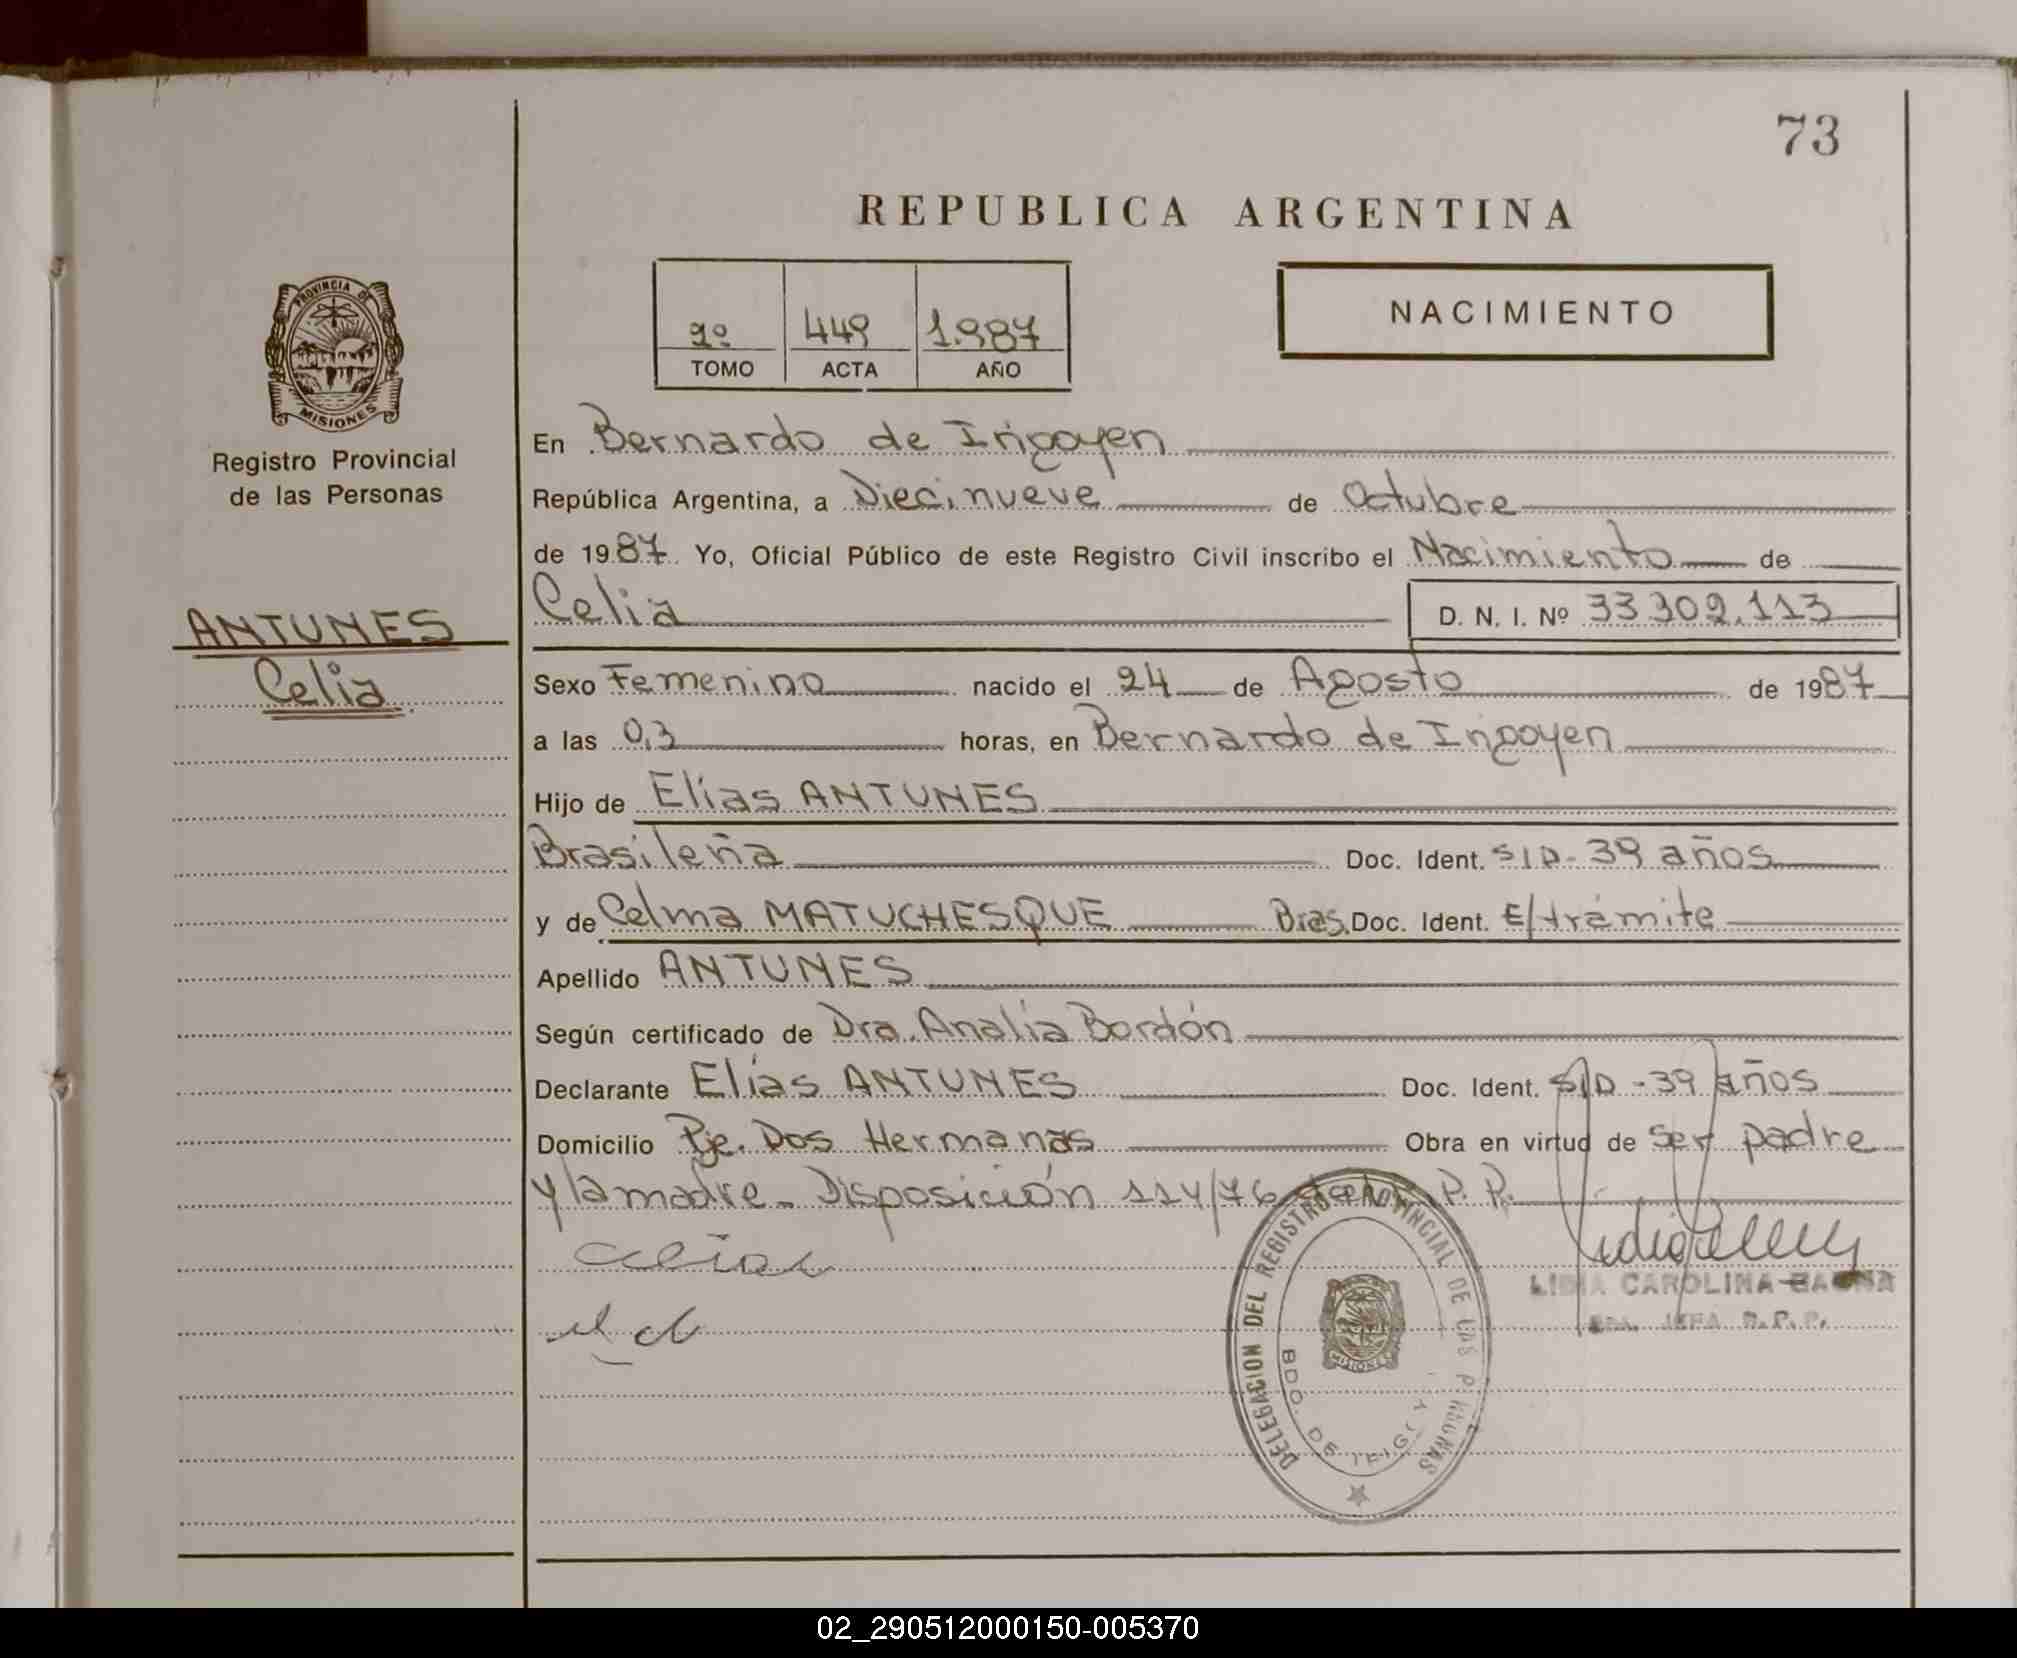 73
REPUBLICA ARGENTINA
2º 449 1.987
TOMO ACTA AÑO
NACIMIENTO
PROVINCIA DE
MISIONES
Registro Provincial
de las Personas
ANTUNES
Celia
En Bernardo de Irigoyen
República Argentina, a Diecinueve de Octubre
de 1987. Yo, Oficial Público de este Registro Civil inscribo el Nacimiento de
Celia D. N. I. Nº 33 302.113
Sexo Femenino nacido el 24 de Agosto de 1987
a las 03 horas, en Bernardo de Irigoyen
Hijo de Elías ANTUNES
Brasileña Doc. Ident. S/D - 39 años
y de Celma MATUCHESQUE Bras. Doc. Ident. E/trámite
Apellido ANTUNES
Según certificado de Dra. Analía Bordón
Declarante Elías ANTUNES Doc. Ident. S/D - 39 años
Domicilio Pje. Dos Hermanas Obra en virtud de ser padre
y la madre - Disposición 114/76 P. P.
DELEGACION DEL REGISTRO PROVINCIAL DE LAS PERSONAS
BDO. DE IRIGOY
MISIONES
LIDIA CAROLINA
JEFA R.P.P.
02_290512000150-005370